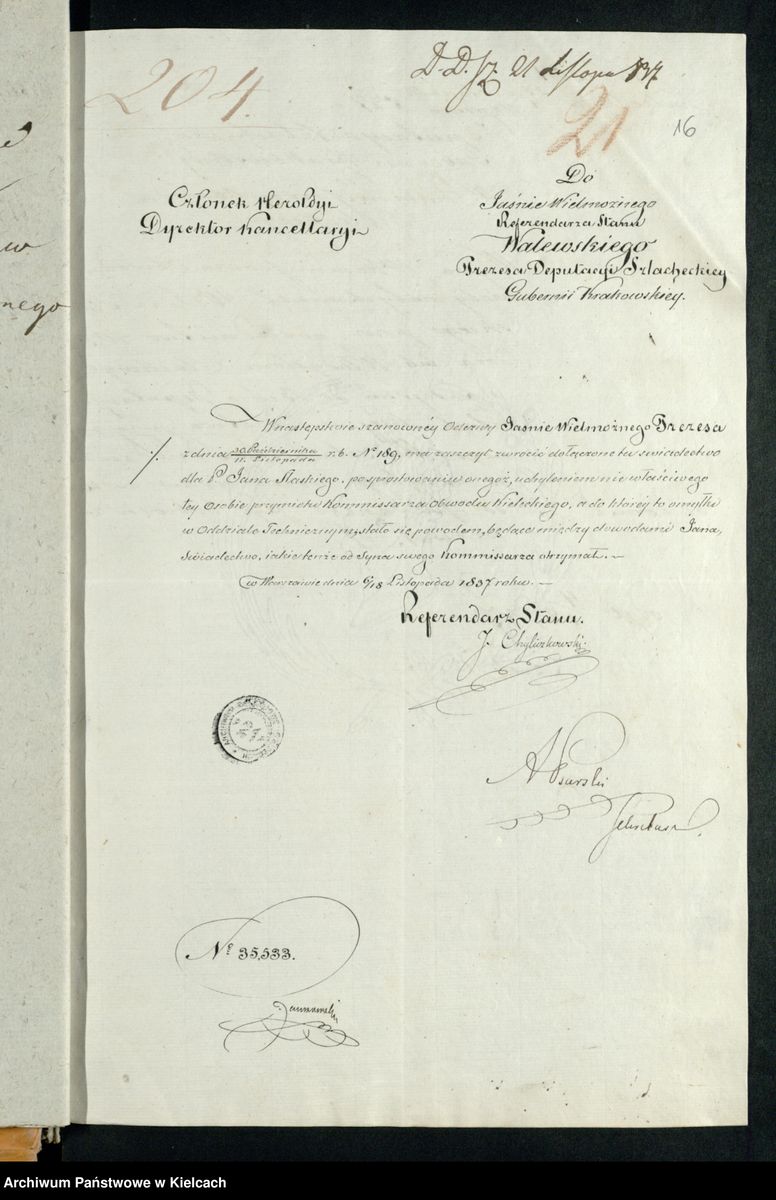 204.
D. D. Sz. 21 Listopa 837
21
16
Członek Heroldyi
Dyrektor Kancellaryi
Do
Jaśnie Wielmożnego
Referendarza Stanu
Walewskiego
Prezesa Deputacyi Szlacheckiey
Gubernii Krakowskiéy.
W następstwie szanownéy Odezwy Jaśnie Wielmożnego Prezesa
z dnia 30 Października / 11 Listopada r. b. No 189, ma zaszczyt zwrócić dołączone tu świadectwo
dla P. Jana Slaskiego, po sprostowaniu onegoż, uchyleniem nie właściwego
tey Osobie przymiotu Kommissarza Obwodu Kieleckiego, a do któréy to omyłki
w Oddziale Technicznym, stało się powodem, będące między dowodami Jana,
Świadectwo, iakie tenże od Syna swego Kommissarza otrzymał. —
w Warszawie dnia 6/18 Listopada 1837 roku. —
Referendarz Stanu.
J. Chyliczkowski
No 35,533.
Archiwum Państwowe w Kielcach